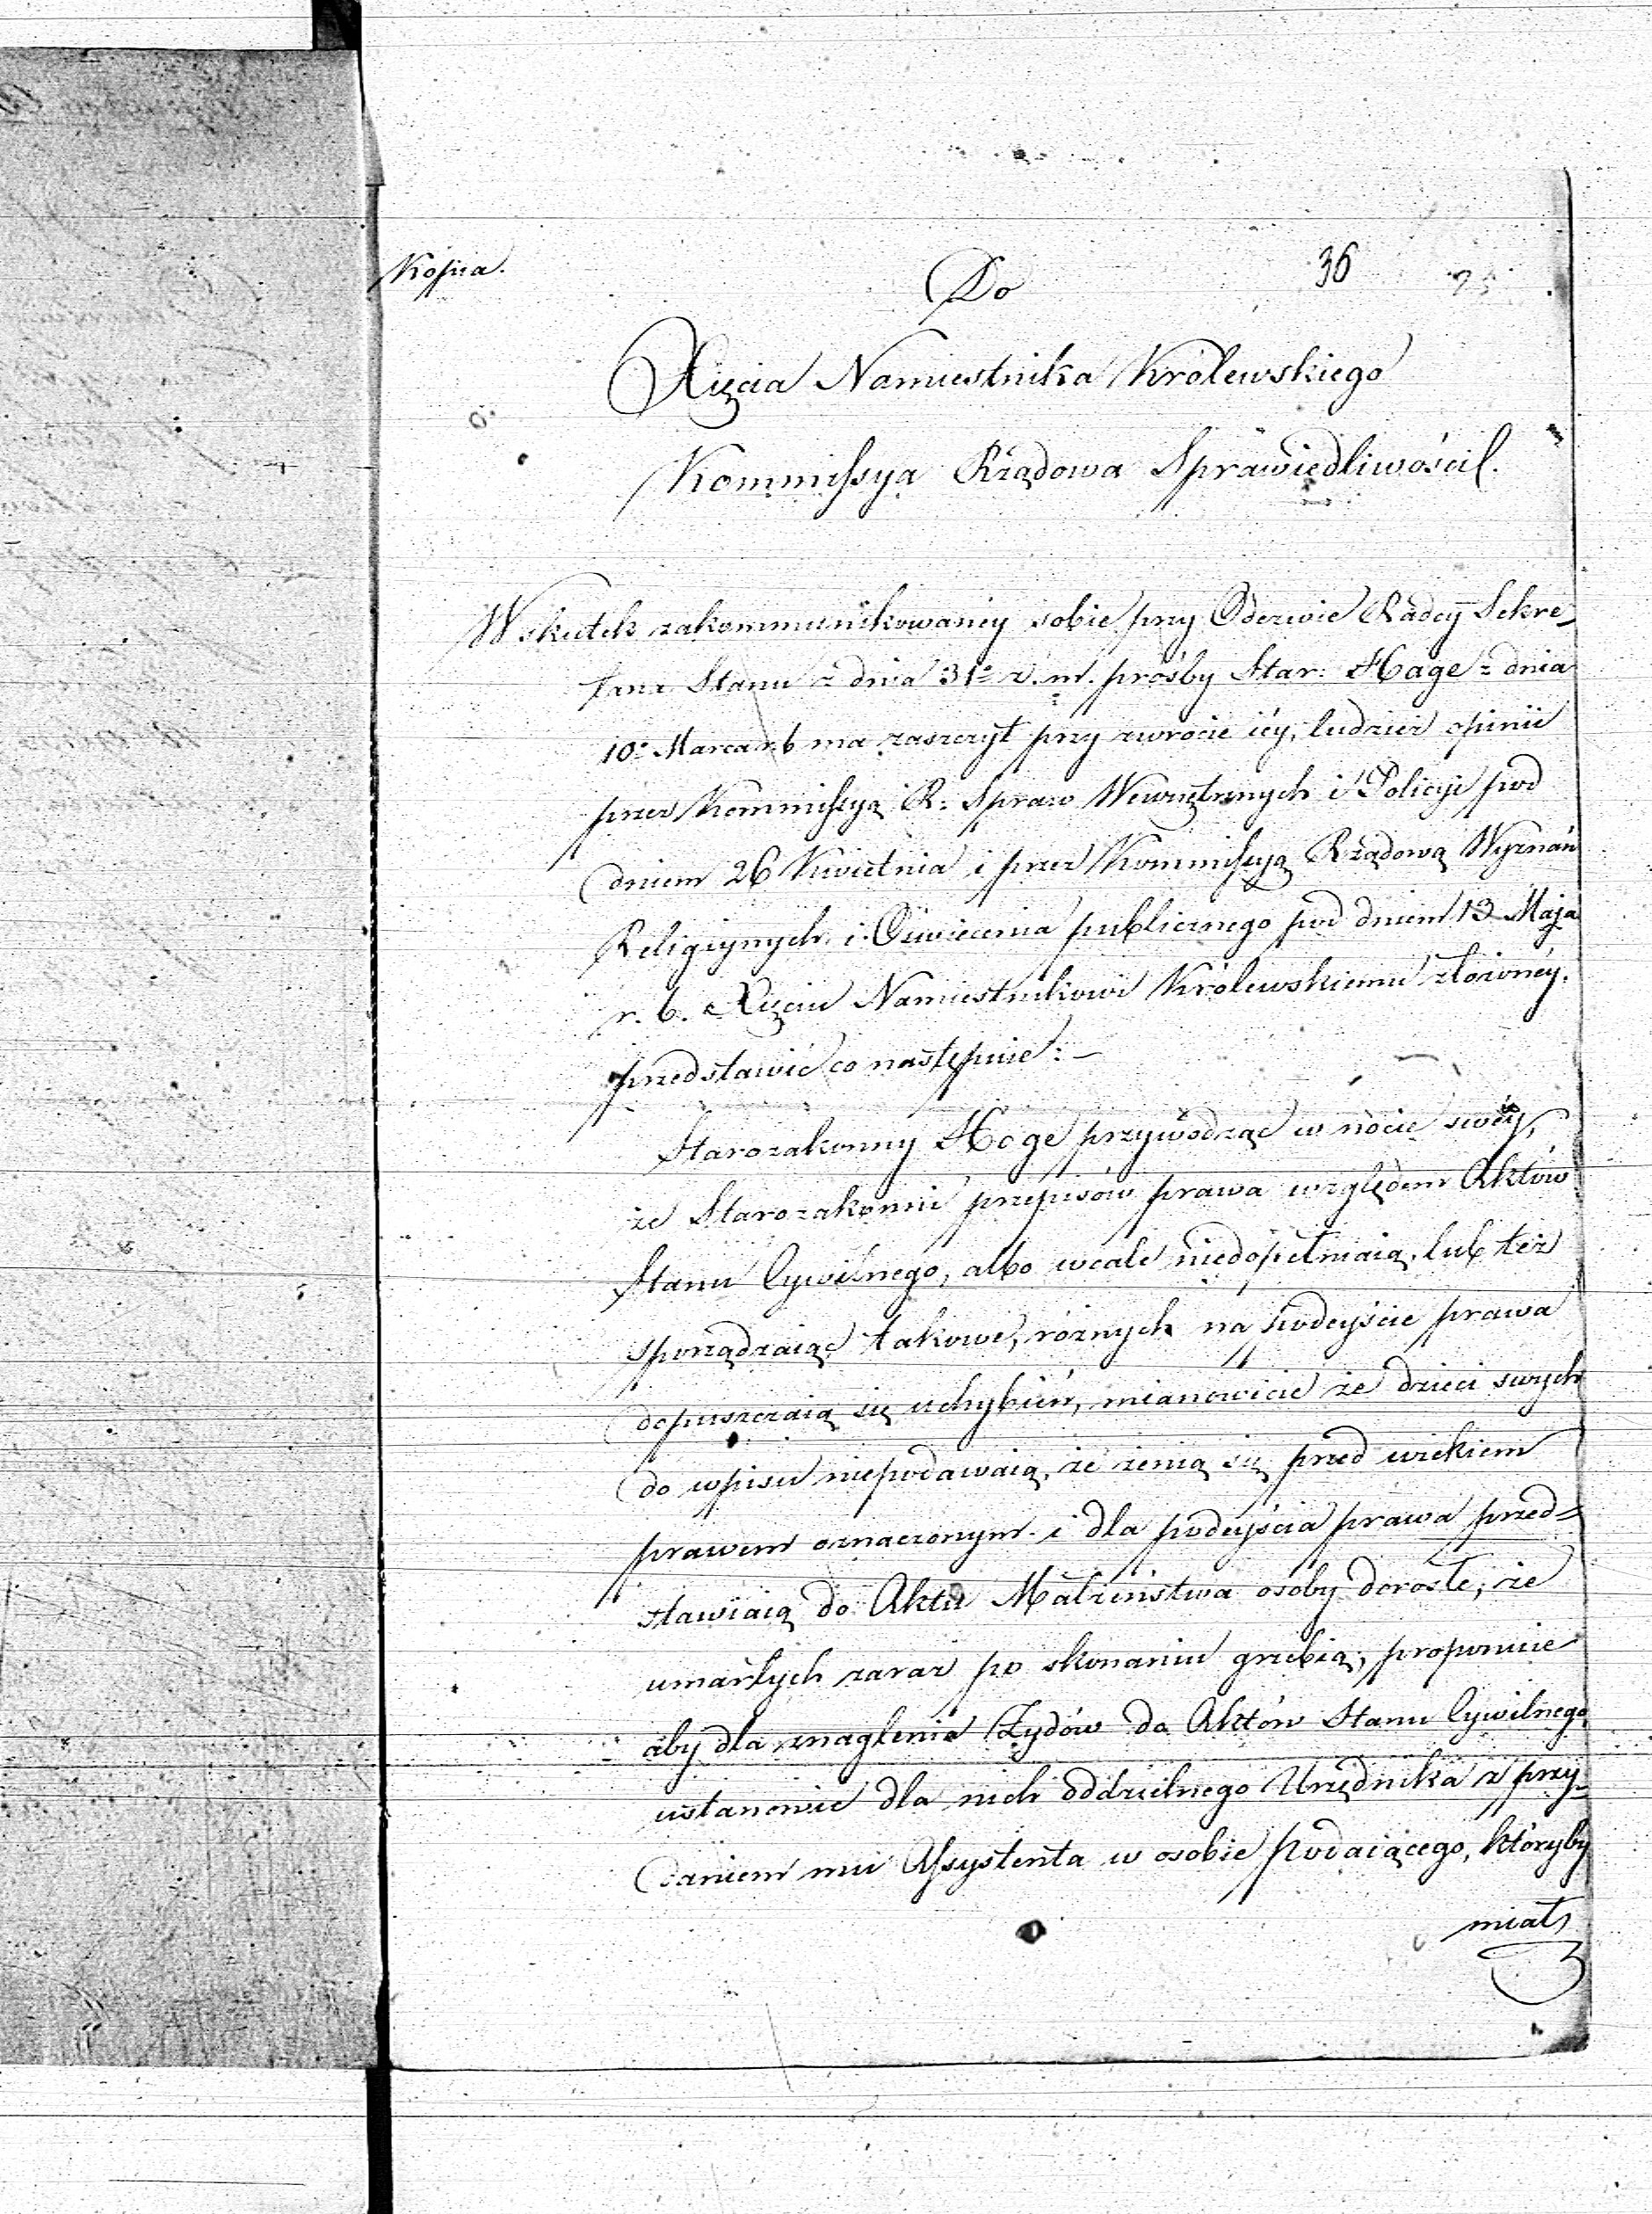 Kopia.
36
Do
Xięcia Namiestnika Królewskiego
Kommissya Rządowa Sprawiedliwości.
Wskutek zakommunikowaney sobie przy Odezwie Radcy Sekre-
tarza Stanu z dnia 31º z. m. prośby Star: Hoge z dnia
10º Marca r. b ma zaszczyt przy zwrocie iéy, tudzież opinii
przez Kommissyą R: Spraw Wewnętrznych i Policyi pod
dniem 26 Kwietnia i przez Kommissyą Rządową Wyznań
Religiynych i Oświecenia publicznego pod dniem 13 Maja
r. b. Xięciu Namiestnikowi Królewskiemu złożonéy,
przedstawić co następuie: —
Starozakonny Hoge przywodząc w nocie swéy,
że Starozakonni przepisów prawa względem Aktów
Stanu Cywilnego, albo wcale niedopełniaią, lub też
sporządzaiąc takowe, różnych na podeyście prawa
dopuszczaią się uchybień, mianowicie że dzieci swych
do wpisu niepodawaią, że żenią się przed wiekiem
prawem oznaczonym i dla podeyścia prawa przed=
stawiaią do Aktu Małżeństwa osoby dorosłe, że
umarłych zaraz po skonaniu grzebią, proponuie
aby dla znaglenia Żydów do Aktów Stanu Cywilnego
ustanowić dla nich oddzielnego Urzędnika z przy-
daniem mu Assystenta w osobie podaiącego, któryby
miał